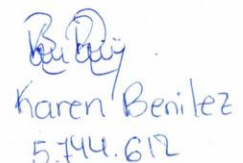 Karen Benitez
5.744.612